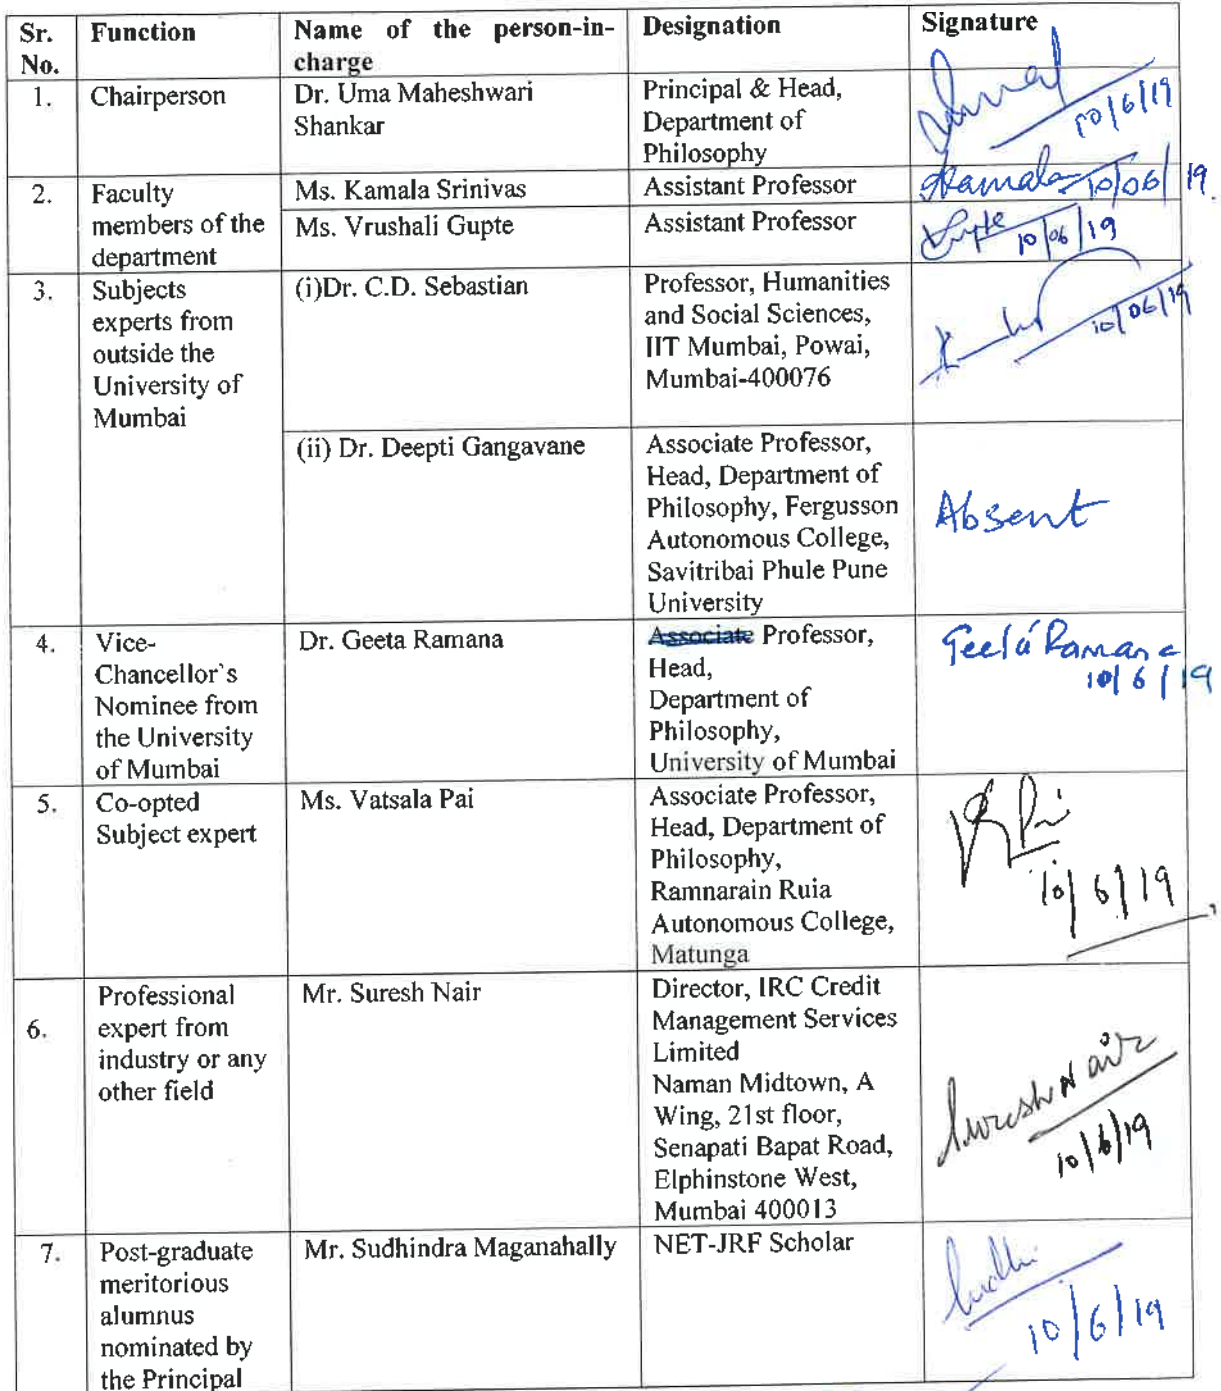 Sr. No. Function Name of the person-in-charge Designation Signature
1. Chairperson Dr. Uma Maheshwari Shankar
Principal & Head,
Department of
Philosophy
10/6/19
2. Faculty
members of the
department
Ms. Kamala Srinivas Assistant Professor Kamala 10/06/19.
Ms. Vrushali Gupte Assistant Professor Gupte 10/06/19
3. Subjects
experts from
outside the
University of
Mumbai
(i)Dr. C.D. Sebastian
Professor, Humanities
and Social Sciences,
IIT Mumbai, Powai,
Mumbai-400076
10/06/19
(ii) Dr. Deepti Gangavane
Associate Professor,
Head, Department of
Philosophy, Fergusson
Autonomous College,
Savitribai Phule Pune
University
Absent
4. Vice-
Chancellor's
Nominee from
the University
of Mumbai
Dr. Geeta Ramana
Associate Professor,
Head,
Department of
Philosophy,
University of Mumbai
Geeta Ramana
10/6/19
5. Co-opted
Subject expert
Ms. Vatsala Pai
Associate Professor,
Head, Department of
Philosophy,
Ramnarain Ruia
Autonomous College,
Matunga
10/6/19
6. Professional
expert from
industry or any
other field
Mr. Suresh Nair
Director, IRC Credit
Management Services
Limited
Naman Midtown, A
Wing, 21st floor,
Senapati Bapat Road,
Elphinstone West,
Mumbai 400013
Suresh Nair
10/6/19
7. Post-graduate
meritorious
alumnus
nominated by
the Principal
Mr. Sudhindra Maganahally
NET-JRF Scholar
Sudhi
10/6/19